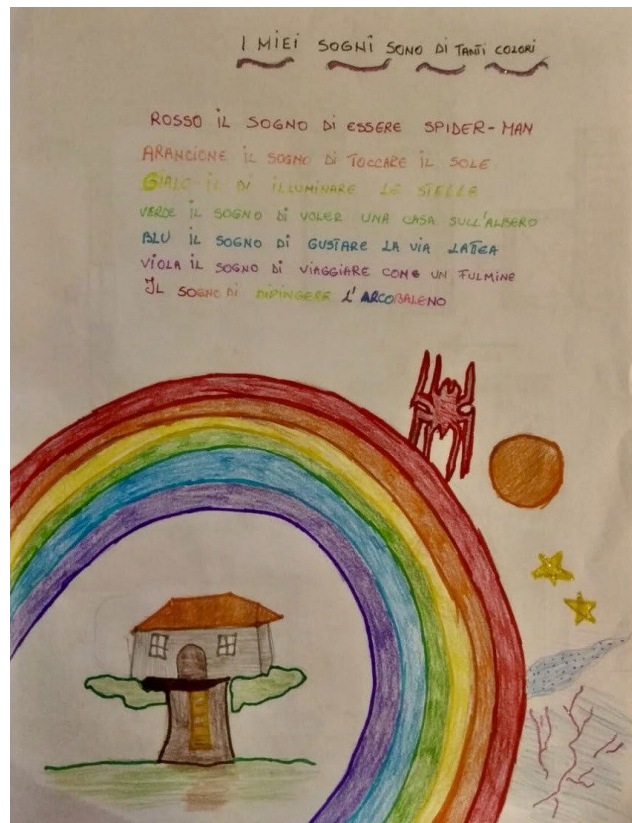 I MIEI SOGNI SONO DI TANTI COLORI
ROSSO IL SOGNO DI ESSERE SPIDER-MAN
ARANCIONE IL SOGNO DI TOCCARE IL SOLE
GIALO IL DI ILLUMINARE LE STELLE
VERDE IL SOGNO DI VOLER UNA CASA SULL'ALBERO
BLU IL SOGNO DI GUSTARE LA VIA LATTEA
VIOLA IL SOGNO DI VIAGGIARE COME UN FULMINE
IL SOGNO DI DIPINGERE L'ARCOBALENO